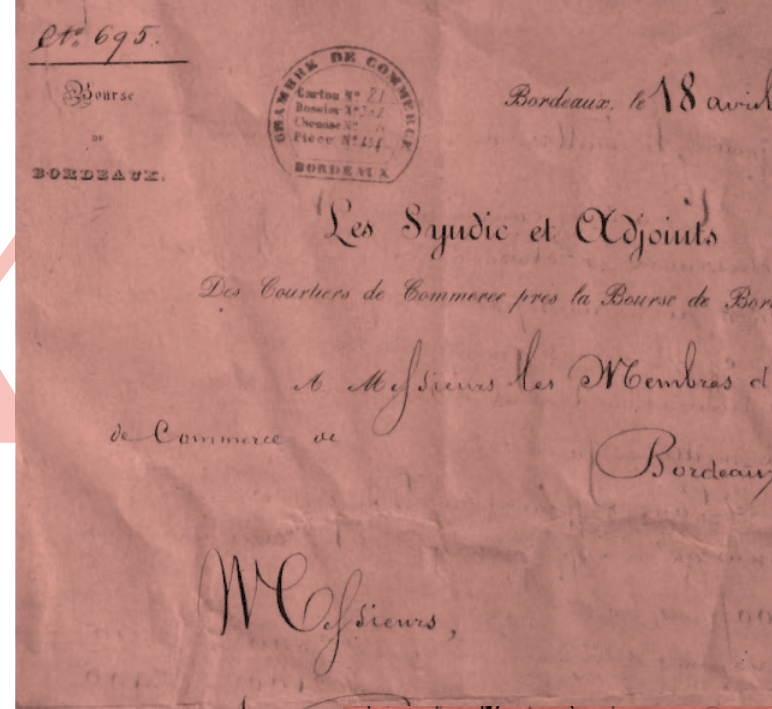 N° 695.
Bourse
DE
BORDEAUX.
CHAMBRE DE COMMERCE
Carton N° 21
Dossier N°
Chemise N°
Piece N°
BORDEAUX
Bordeaux, le 18 avril
Les Syndic et Adjoints
Des Courtiers de Commerce près la Bourse de Bord
A Messieurs les Membres d
de Commerce de
Bordeaux
Messieurs,